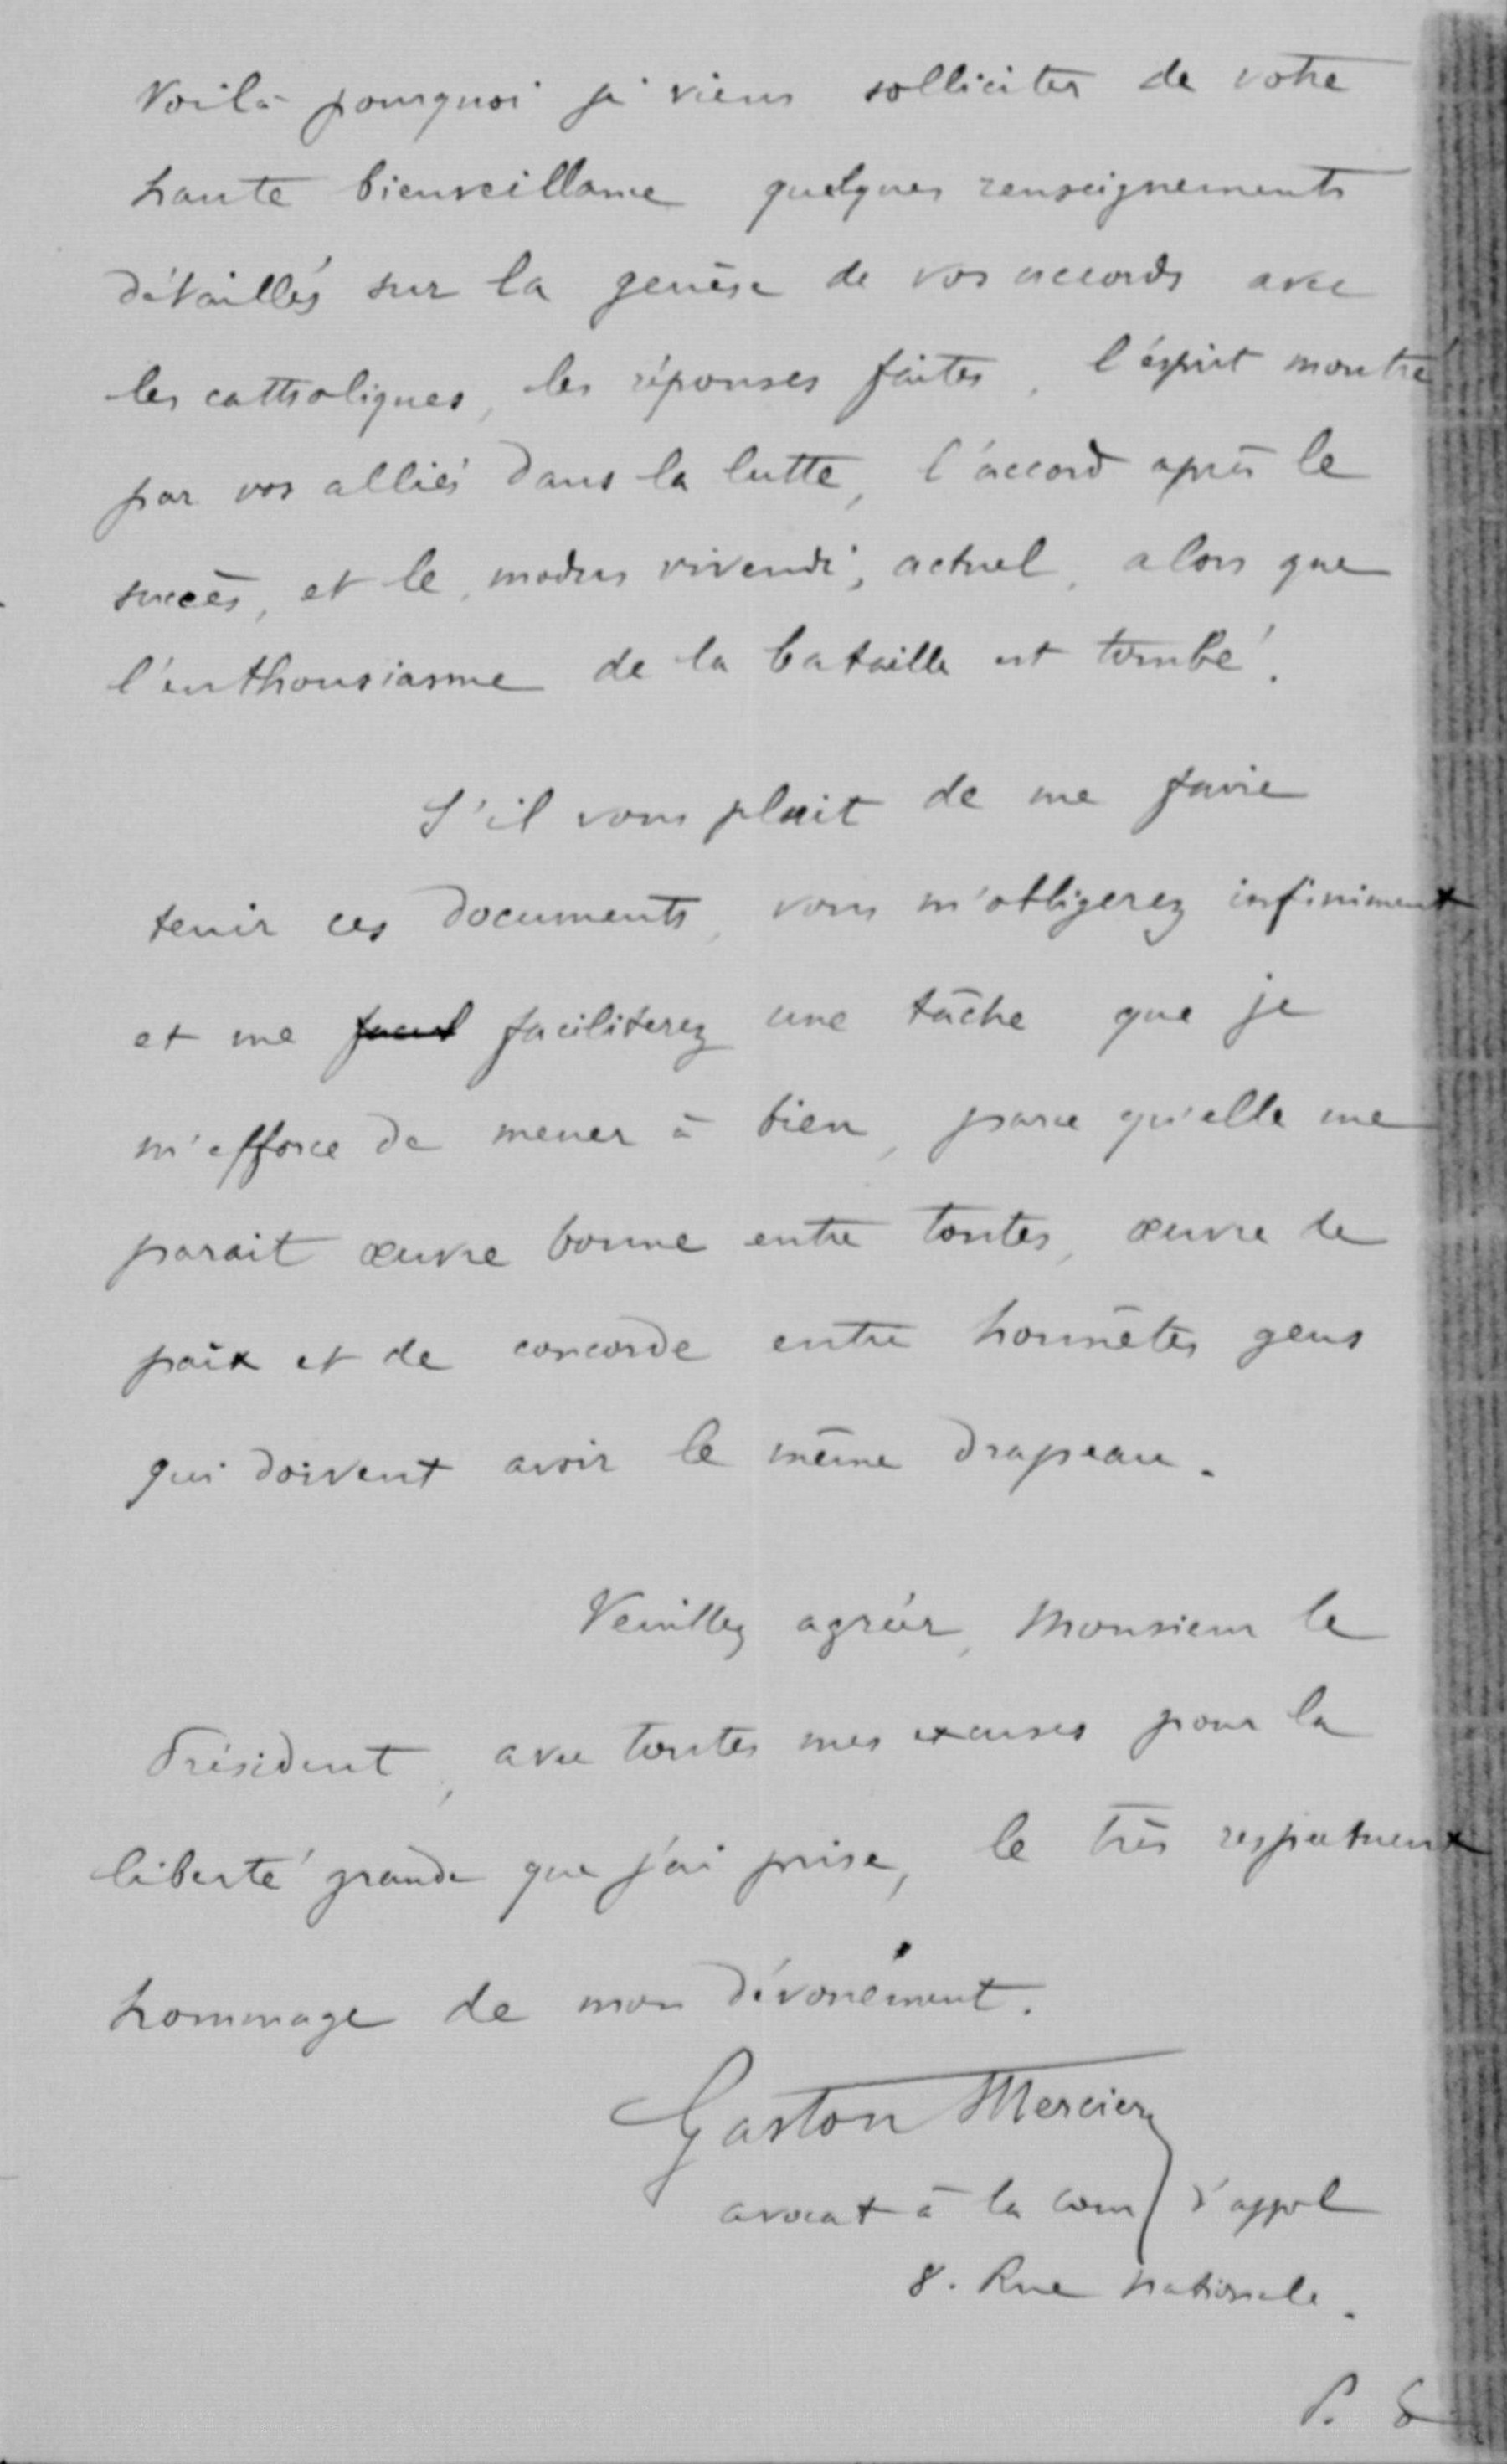 Voilà pourquoi je viens solliciter de votre
haute bienveillance quelques renseignements
détaillés sur la genèse de vos accords avec
les catholiques, les réponses faites, l'ésprit montré
par vos alliés dans la lutte, l'accord après le
succès, et le "modus vivendi", actuel, alors que
l'enthousiasme de la bataille est tombé.
S'il vous plait de me faire
tenir ces documents, vous m'obligerez infiniment
et me facilliterez une tâche que je
m'efforce de mener à bien, parce qu'elle me
parait œuvre bonne entre toutes, œuvre de
paix et de concorde entre honnêtes gens
qui doivent avoir le même drapeau.
Veuillez agréer, Monsieur le
Président, avec toutes mes excuses pour la
liberté grande que j'ai prise, le très respectueux
hommage de mon dévouement.
Gaston Mercier
avocat à la cour d'appel
8. Rue Nationale.
P. S